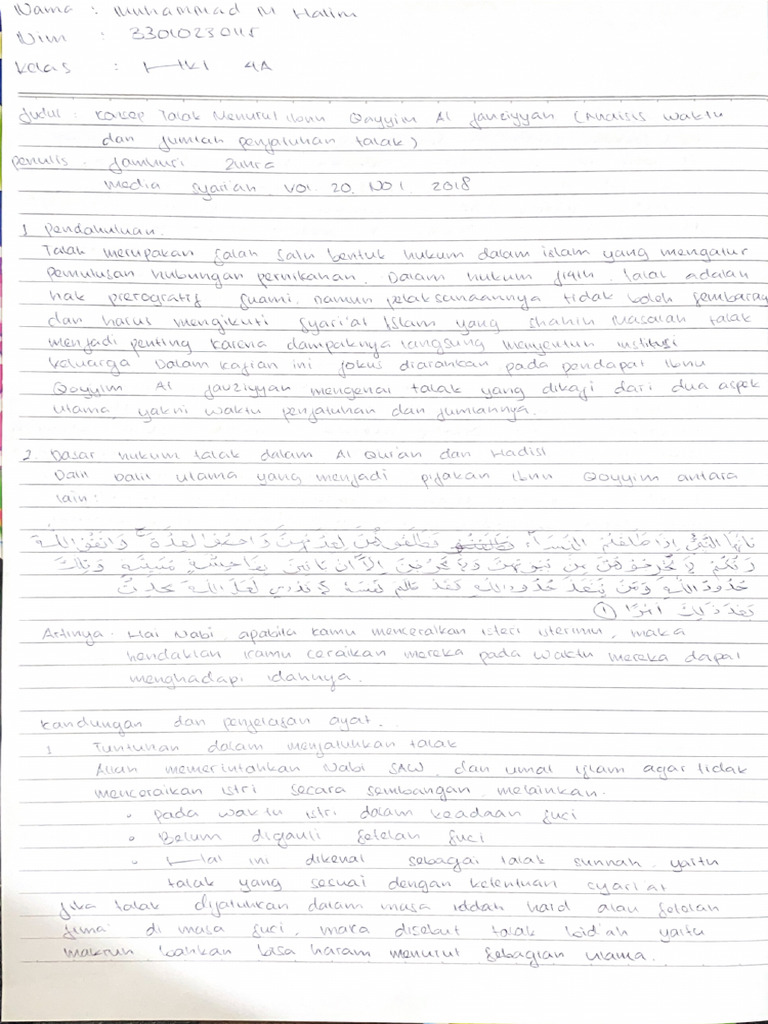 Nama : Muhammad M Halim
Nim : 3301023045
Kelas : HKI 4A
Judul : Konsep Talak Menurut Ibnu Qayyim Al Jauziyyah (Analisis Waktu
dan Jumlah penjatuhan talak)
Penulis . Jamhuri Zuhra
Media Syari'ah Vol. 20. NO 1. 2018
1 Pendahuluan.
Talak merupakan salah satu bentuk hukum dalam islam yang mengatur
Pemutusan hubungan pernikahan. Dalam hukum fiqih talak adalah
hak prerogratif suami. Namun pelaksanaannya tidak boleh sembarang
dan harus mengikuti syari'at Islam yang shahih Masalah talak
menjadi penting karena dampaknya langsung menyentuh institusi
keluarga Dalam kajian ini fokus diarahkan pada pendapat Ibnu
Qoyyim Al Jauziyyah mengenai talak yang dikaji dari dua aspek
utama, yakni waktu penjatuhan dan jumlahnya.
2. Dasar hukum talak dalam Al Qur'an dan Hadist
Dalil Dalil utama yang menjadi pijakan Ibnu Qoyyim antara
lain :
Artinya . Hai Nabi, apabila kamu menceraikan isteri isterimu, maka
hendaklah kamu ceraikan mereka pada waktu mereka dapat
menghadapi idahnya.
Kandungan dan penjelasan ayat.
1 Tuntunan dalam menjatuhkan talak
Allah memerintahkan Nabi SAW, dan umat islam agar tidak
menceraikan istri secara sembangan, melainkan.
• pada waktu istri dalam keadaan suci
• Belum digauli setelah suci
• Hal ini dikenal sebagai talak sunnah, yaitu
talak yang sesuai dengan ketentuan syari'at
Jika talak dijatuhkan dalam masa iddah haid atau setelah
jima' di masa suci, maka disebut talak bid'ah yaitu
makruh bahkan bisa haram menurut sebagian ulama.